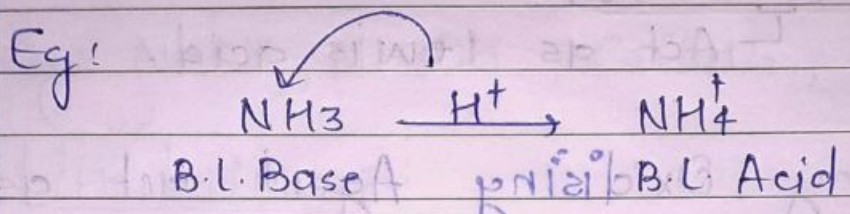 Eg:
NH3 H+ NH4+
B.L. Base B.L. Acid